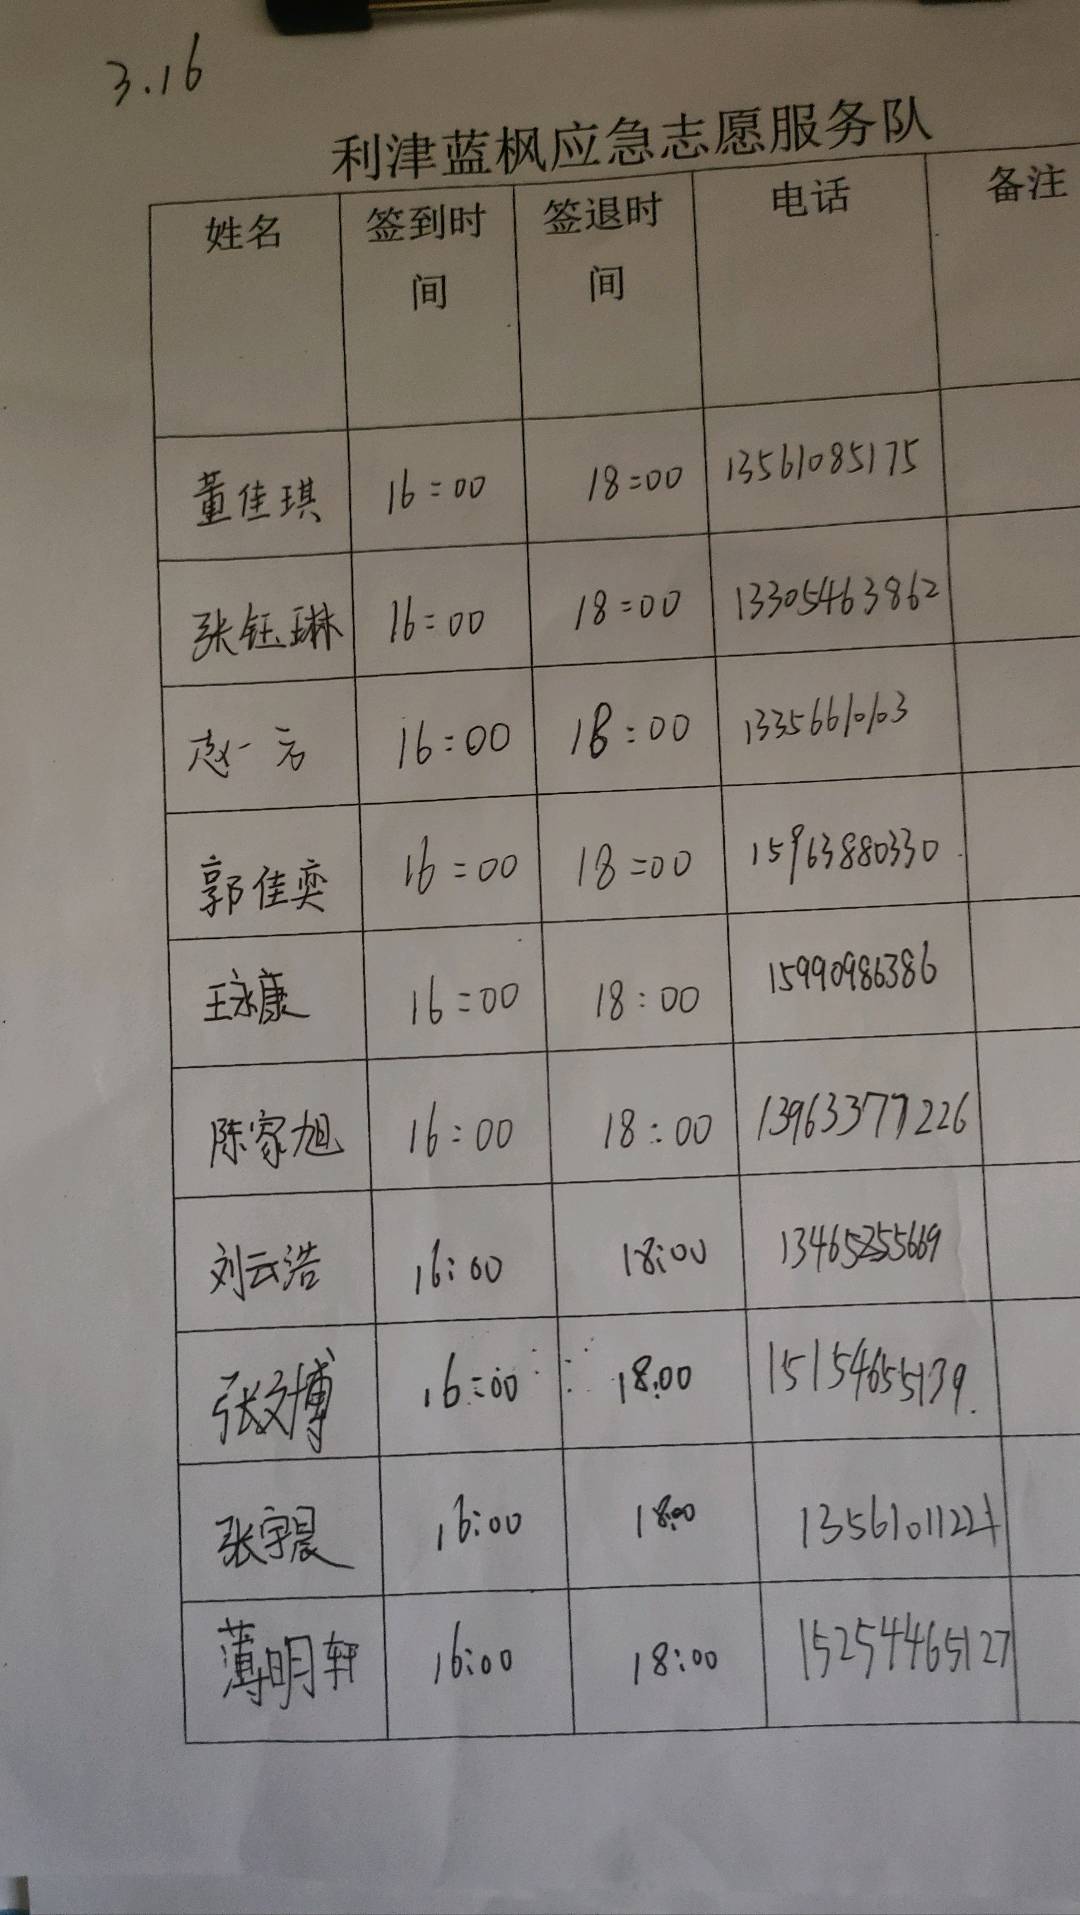 3.16
利津蓝枫应急志愿服务队
姓名 签到时间 签退时间 电话 备注
董佳琪 16:00 18:00 13561085175
张钰琳 16:00 18:00 13305463862
赵一 16:00 18:00 13356610103
郭佳奕 16:00 18:00 15963880330
王永康 16:00 18:00 15990986386
陈家旭 16:00 18:00 13963377226
刘云浩 16:00 18:00
张文博 16:00 18:00 15154655139
张宇晨 16:00 18:00
薄明轩 16:00 18:00 15254465127